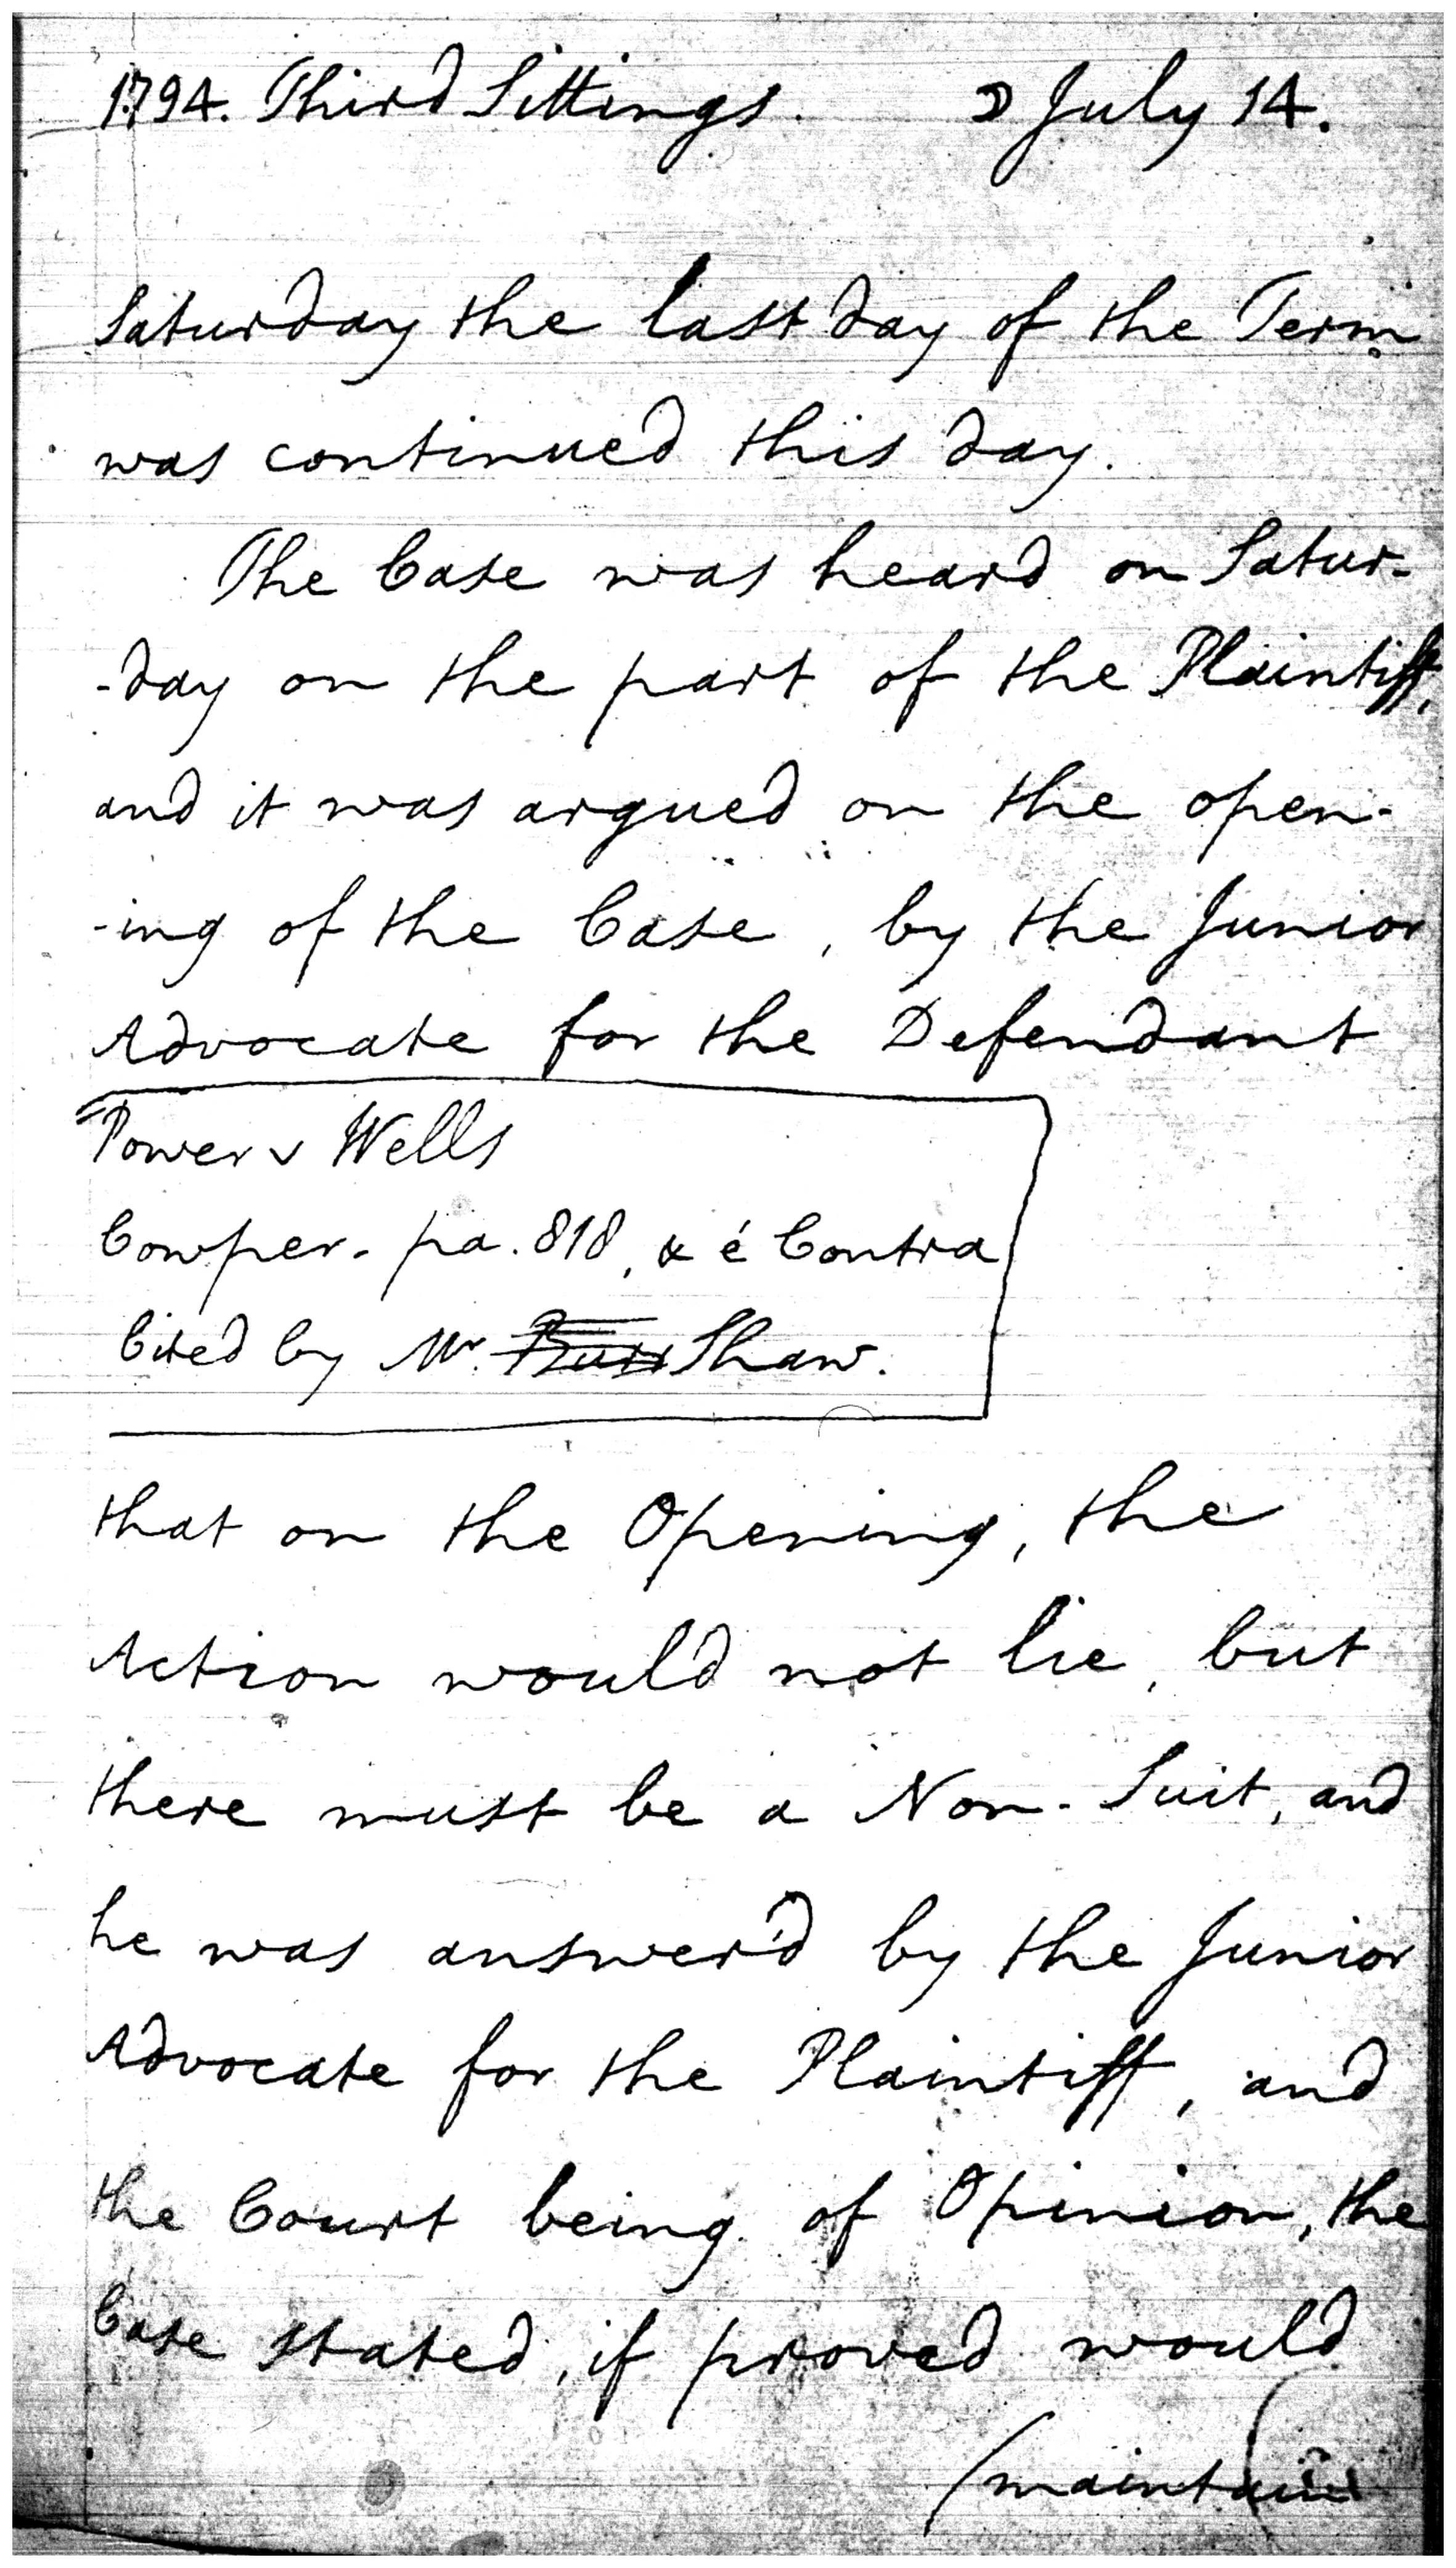 1794. Third Sittings. ☽ July 14.
Saturday the last day of the Term
was continued this day.
The Case was heard on Satur-
-day on the part of the Plaintiff,
and it was argued on the open-
-ing of the Case, by the Junior
Advocate for the Defendant
Power v Wells
Cowper. pa. 818, & é Contra
Cited by Mr. Shaw.
that on the Opening, the
Action would not lie, but
there must be a Non-Suit, and
he was answer'd by the Junior
Advocate for the Plaintiff, and
the Court being of Opinion, the
Case stated, if proved would
(maintain